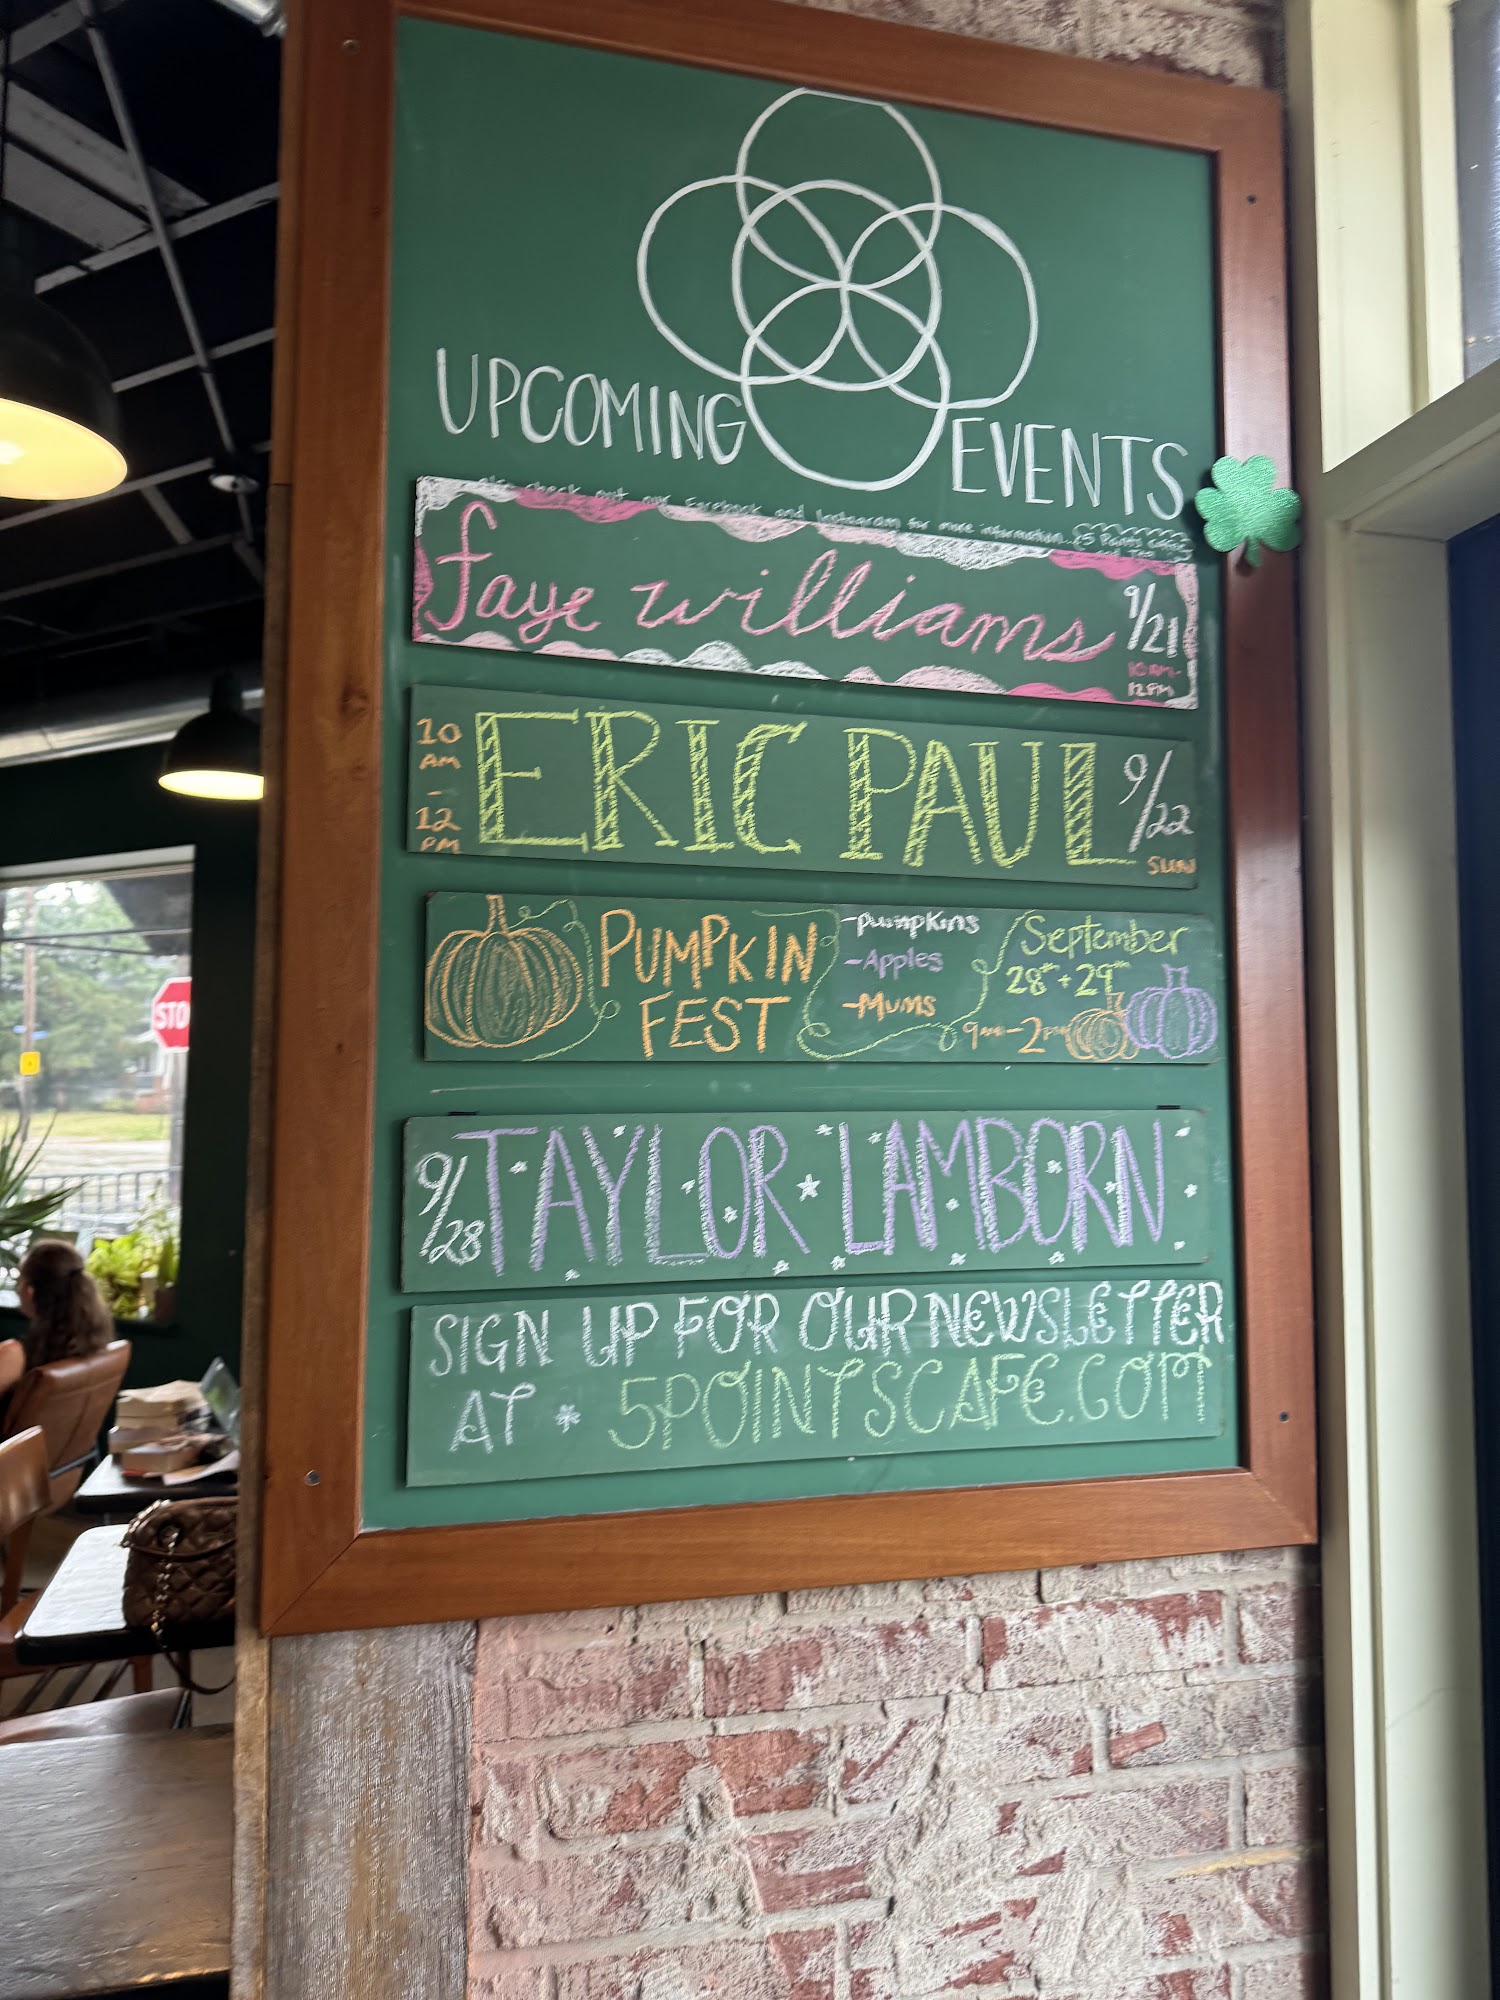 UPCOMING EVENTS
also check out our Facebook and Instagram for more information...
faye williams
9/21
10AM-
12PM
10
AM
-
12
PM
ERIC PAUL
9/22
SUN
PUMPKIN
FEST
-pumpkins
-Apples
-Mums
September
28th + 29th
9AM-2PM
9/28 TAYLOR LAMBORN
SIGN UP FOR OUR NEWSLETTER
AT * 5POINTSCAFE.COM
STO